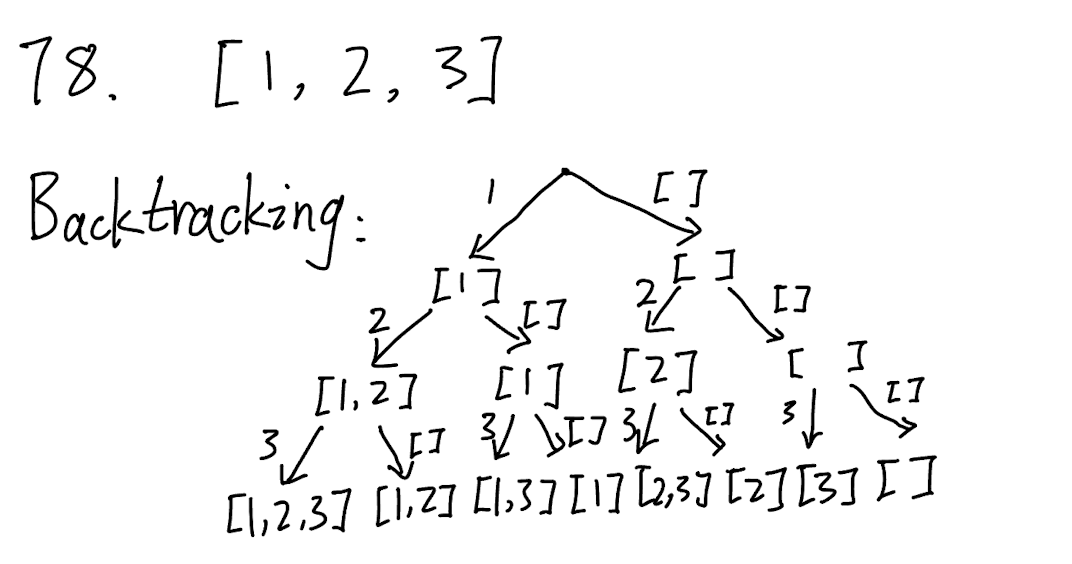 78. [1, 2, 3]
Backtracking:
1 []
[1] []
2 [] 2 []
[1,2] [1] [2] [ ]
3 [] 3 [] 3 [] 3 []
[1,2,3] [1,2] [1,3] [1] [2,3] [2] [3] []